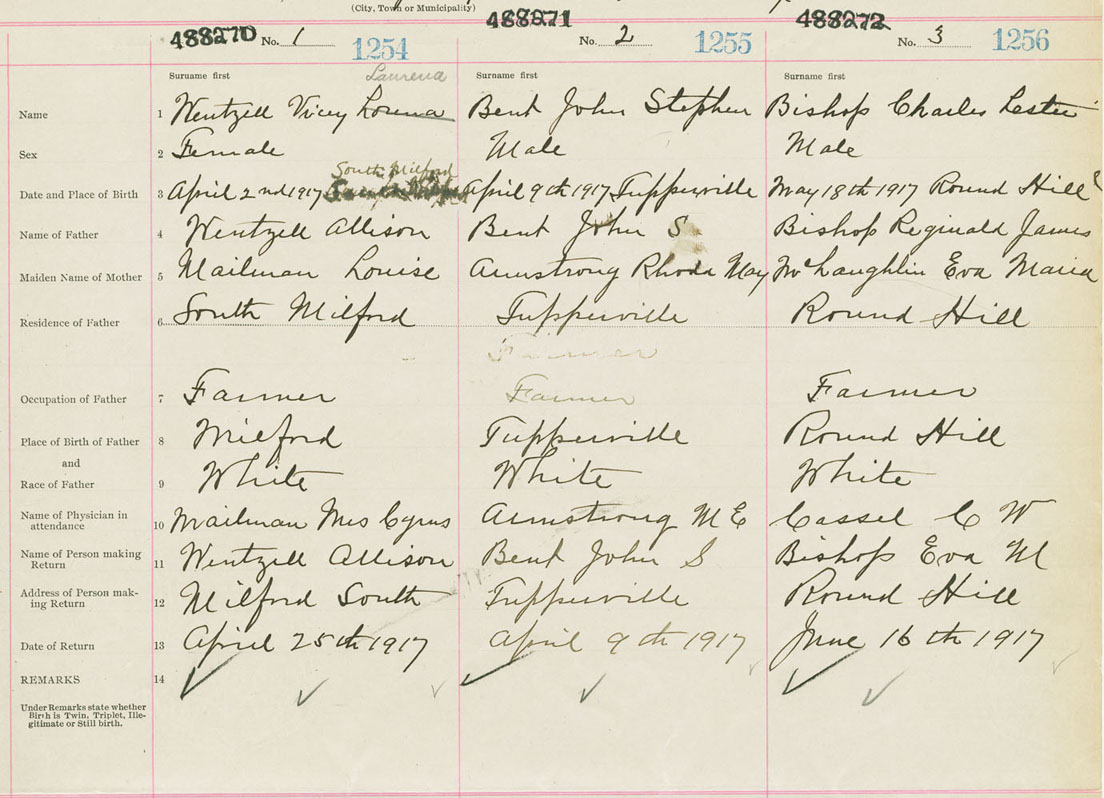 (City, Town or Municipality)
488270 No. 1 1254 488271 No. 2 1255 488272 No. 3 1256
Surname first Laurena Surname first Surname first
Name 1 Wentzell Vicey Lorena Bent John Stephen Bishop Charles Lester
Sex 2 Female Male Male
South Milford
Date and Place of Birth 3 April 2nd 1917 April 9th 1917 Tupperville May 18th 1917 Round Hill
Name of Father 4 Wentzell Allison Bent John S Bishop Reginald James
Maiden Name of Mother 5 Mailman Louise Armstrong Rhoda May McLaughlin Eva Maria
Residence of Father 6 South Milford Tupperville Round Hill
Farmer
Occupation of Father 7 Farmer Farmer Farmer
Place of Birth of Father 8 Milford Tupperville Round Hill
and
Race of Father 9 White White White
Name of Physician in
attendance 10 Mailman Mrs Cyrus Armstrong M E Cassel C W
Name of Person making
Return 11 Wentzell Allison Bent John S Bishop Eva M
Address of Person mak-
ing Return 12 Milford South Tupperville Round Hill
Date of Return 13 April 25th 1917 April 9th 1917 June 16th 1917
REMARKS 14
Under Remarks state whether
Birth is Twin, Triplet, Ille-
gitimate or Still birth.